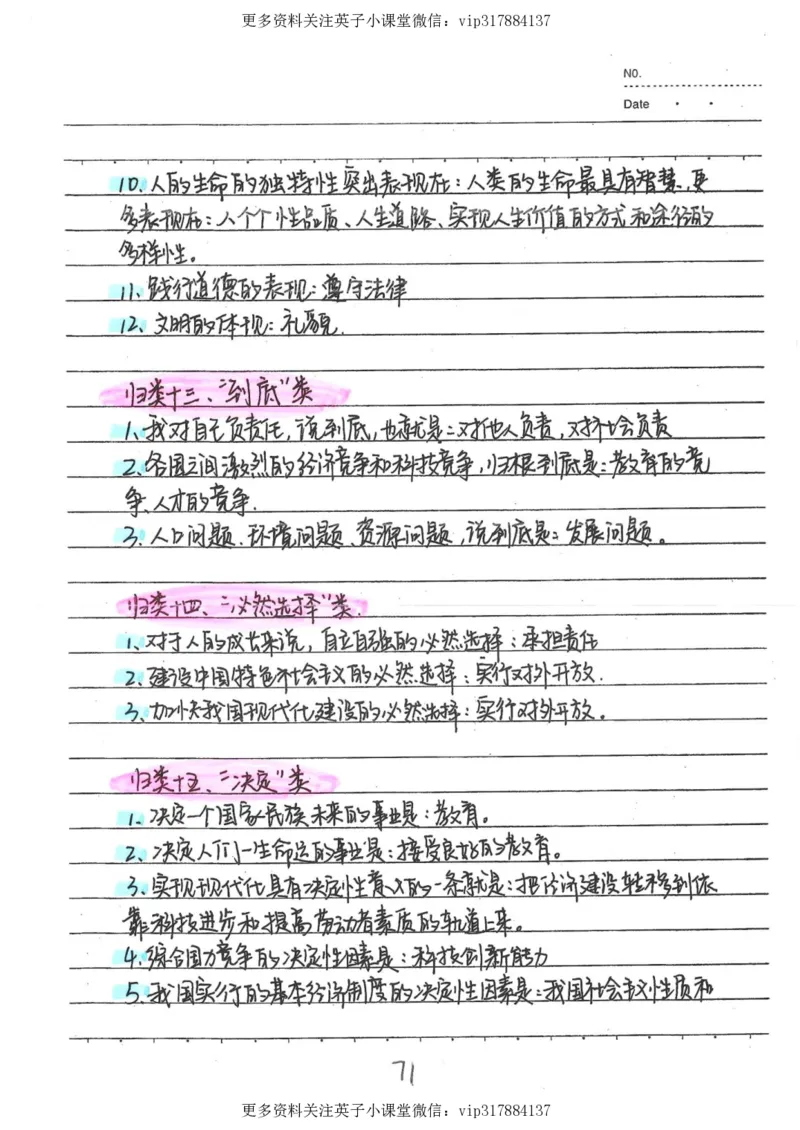 更多资料关注英子小课堂微信：vip317884137
NO.
Date
10、人的生命的独特性突出表现在：人类的生命最具有智慧，更
多表现在：人个个性品质、人生道路、实现人生价值的方式和途径的
多样性。
11、践行道德的表现：遵守法律
12、文明的体现：礼貌.
归类十三、“到底”类
1、我对自己负责任，说到底，也就是：对他人负责，对社会负责
2、各国之间激烈的经济竞争和科技竞争，归根到底是：教育的竞
争、人才的竞争.
3、人口问题、环境问题、资源问题，说到底是：发展问题。
归类十四、“必然选择”类.
1、对于人的成长来说，自立自强的必然选择：承担责任
2、建设中国特色社会主义的必然选择：实行对外开放.
3、加快我国现代化建设的必然选择：实行对外开放。
归类十五、“决定”类
1、决定一个国家民族未来的事业是：教育。
2、决定人们一生命运的事业是：接受良好的教育。
3、实现现代化具有决定性意义的一条就是：把经济建设转移到依
靠科技进步和提高劳动者素质的轨道上来。
4、综合国力竞争的决定性因素是：科技创新能力
5、我国实行的基本经济制度的决定性因素是：我国社会主义性质和
71
更多资料关注英子小课堂微信：vip317884137